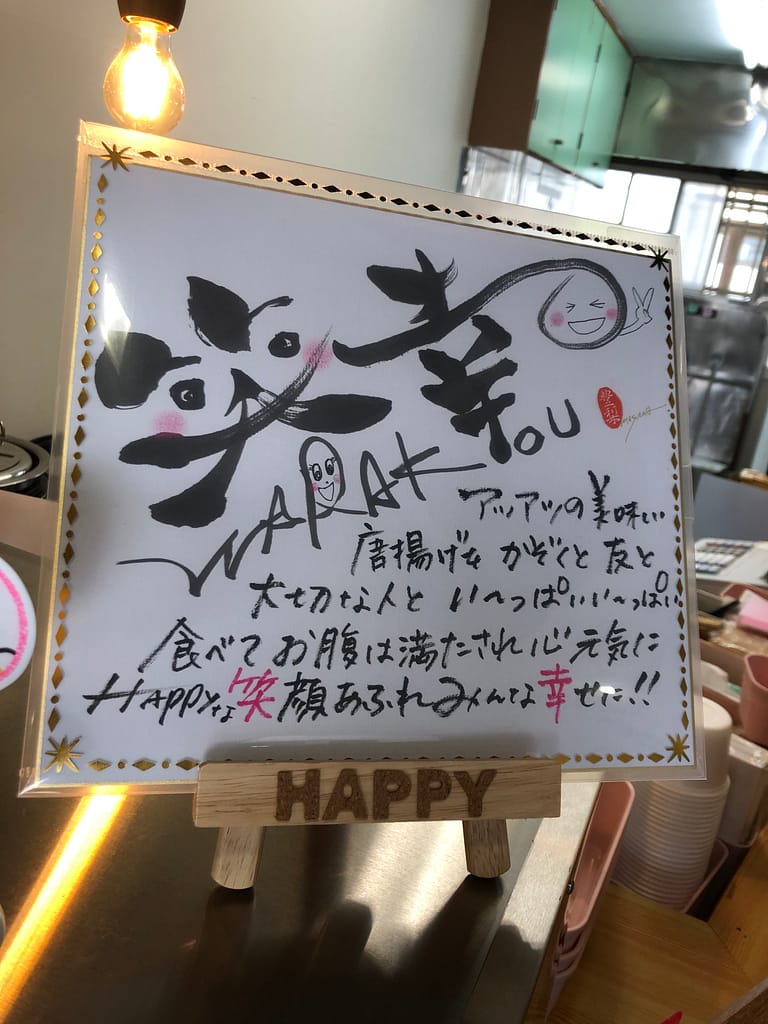 笑幸
WARAKOU
アツアツの美味い
唐揚げを かぞくと 友と
大切な人と い〜っぱいい〜っぱい
食べて お腹は満たされ 心元気に
Happyな笑顔あふれ みんな幸せに!!
HAPPY